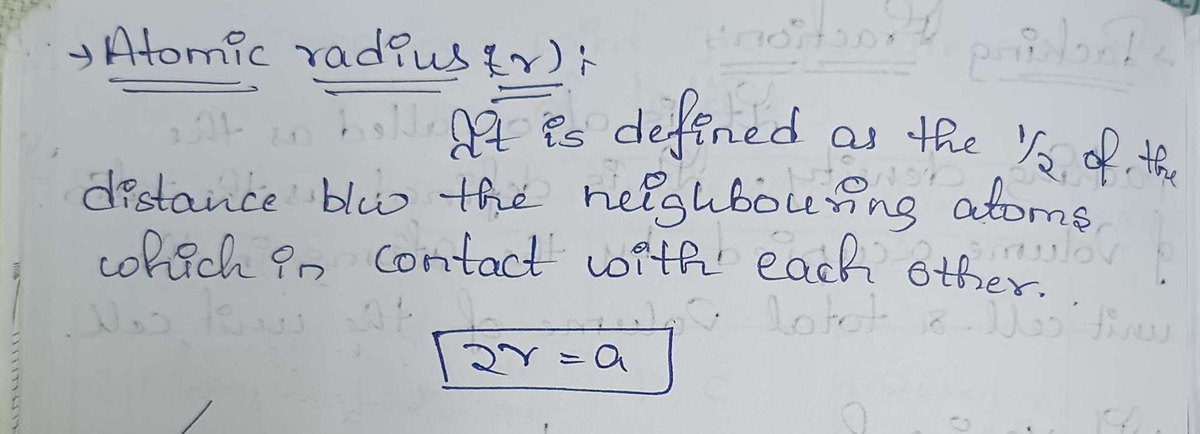 → Atomic radius {r) :
It is defined as the 1/2 of the
distance b/w the neighbouring atoms
which in contact with each other.
2r = a